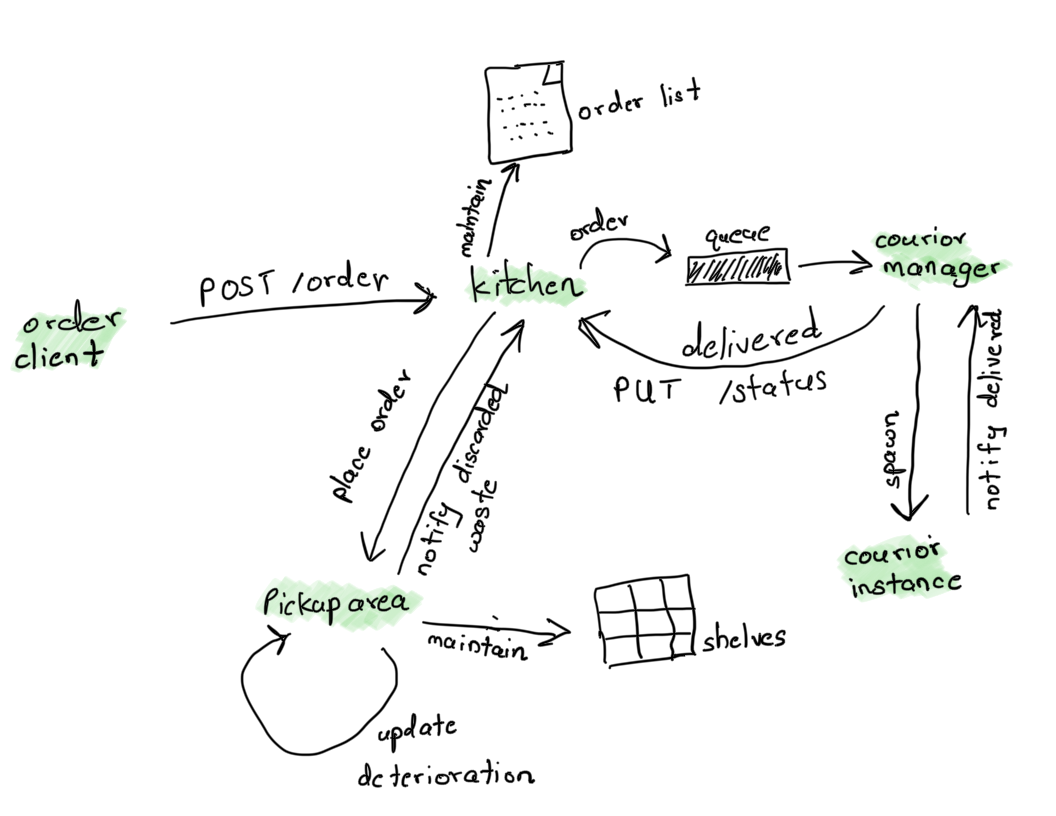 order list
maintain
order
queue
courior
manager
POST /order
kitchen
order
client
delivered
PUT /status
place order
notify discarded
waste
spawn
notify delivered
courior
instance
Pickup area
maintain
shelves
update
deterioration